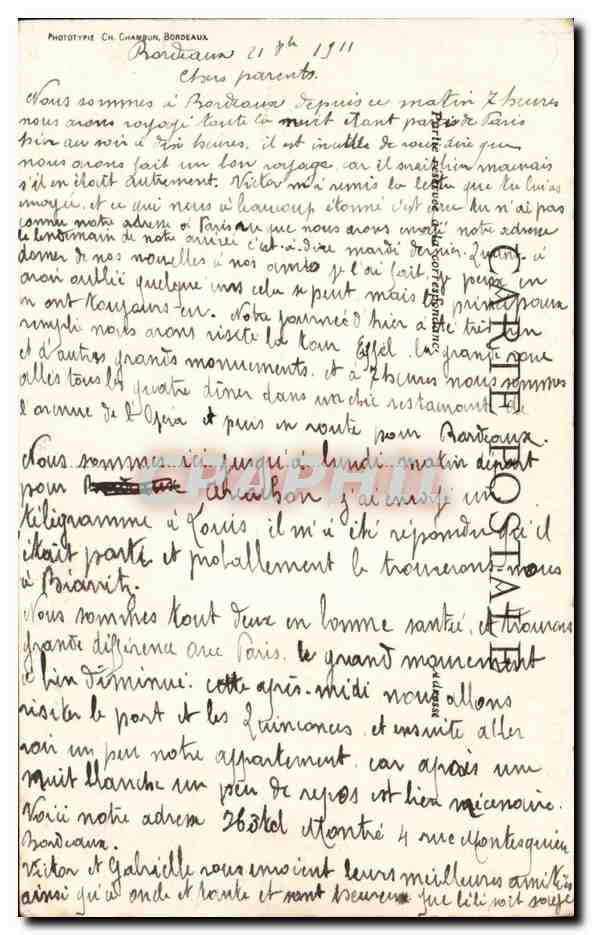 PHOTOTYPIE CH. CHAMBON, BORDEAUX
Bordeaux 21 1911
Chers parents.
Nous sommes à Bordeaux depuis ce matin 7 heures
nous avons voyagé toute la nuit étant partis de Paris
hier au soir à dix heures. il est inutile de vous dire que
nous avons fait un bon voyage, car il serait bien mauvais
s'il en était autrement. Victor m'a remis la lettre que tu lui as
envoyé, et ce qui nous à beaucoup étonné c'est que tu n'ai pas
connu notre adresse à Paris, vu que nous avons envoié notre adresse
le lendemain de notre arrivée c'est-à-dire mardi dernier. Quant à
donner de nos nouvelles à nos amis je l'ai fait, je peux en
avoir oublié quelque uns cela se peut, mais les principaux
n'ont toujours eu. Notre journée d'hier a été très bien
rempli nous avons visité la tour Eiffel. la grande roue
et d'autres grands monuments. et à 7 heures nous sommes
allés tous les quatre dîner dans un chic restaurant de
l'avenue de l'Opéra et puis en route pour Bordeaux.
Nous sommes ici jusqu'à lundi matin départ
pour Arcachon j'ai envoyé un
télégramme à Louis il m'a été répondu qu'il
était parti et proballement le trouverons-nous
à Biarritz.
Nous sommes tout deux en bonne santée, et trouvons
grande différence avec Paris. le grand mouvement
a bien diminué. cette après-midi nous allons
visiter le port et les Quinconces. et ensuite aller
voir un peu notre appartement. car après une
nuit blanche un peu de repos est bien nécessaire.
Voici notre adresse Hôtel Montré 4 rue Montesquieu
Bordeaux.
Victor et Gabrielle vous envoient leurs meilleures amitiés
ainsi qu'à oncle et tante et sont heureux que lili soit
CARTE POSTALE
Partie réservée à la correspondance
adresse
CPAPHIL